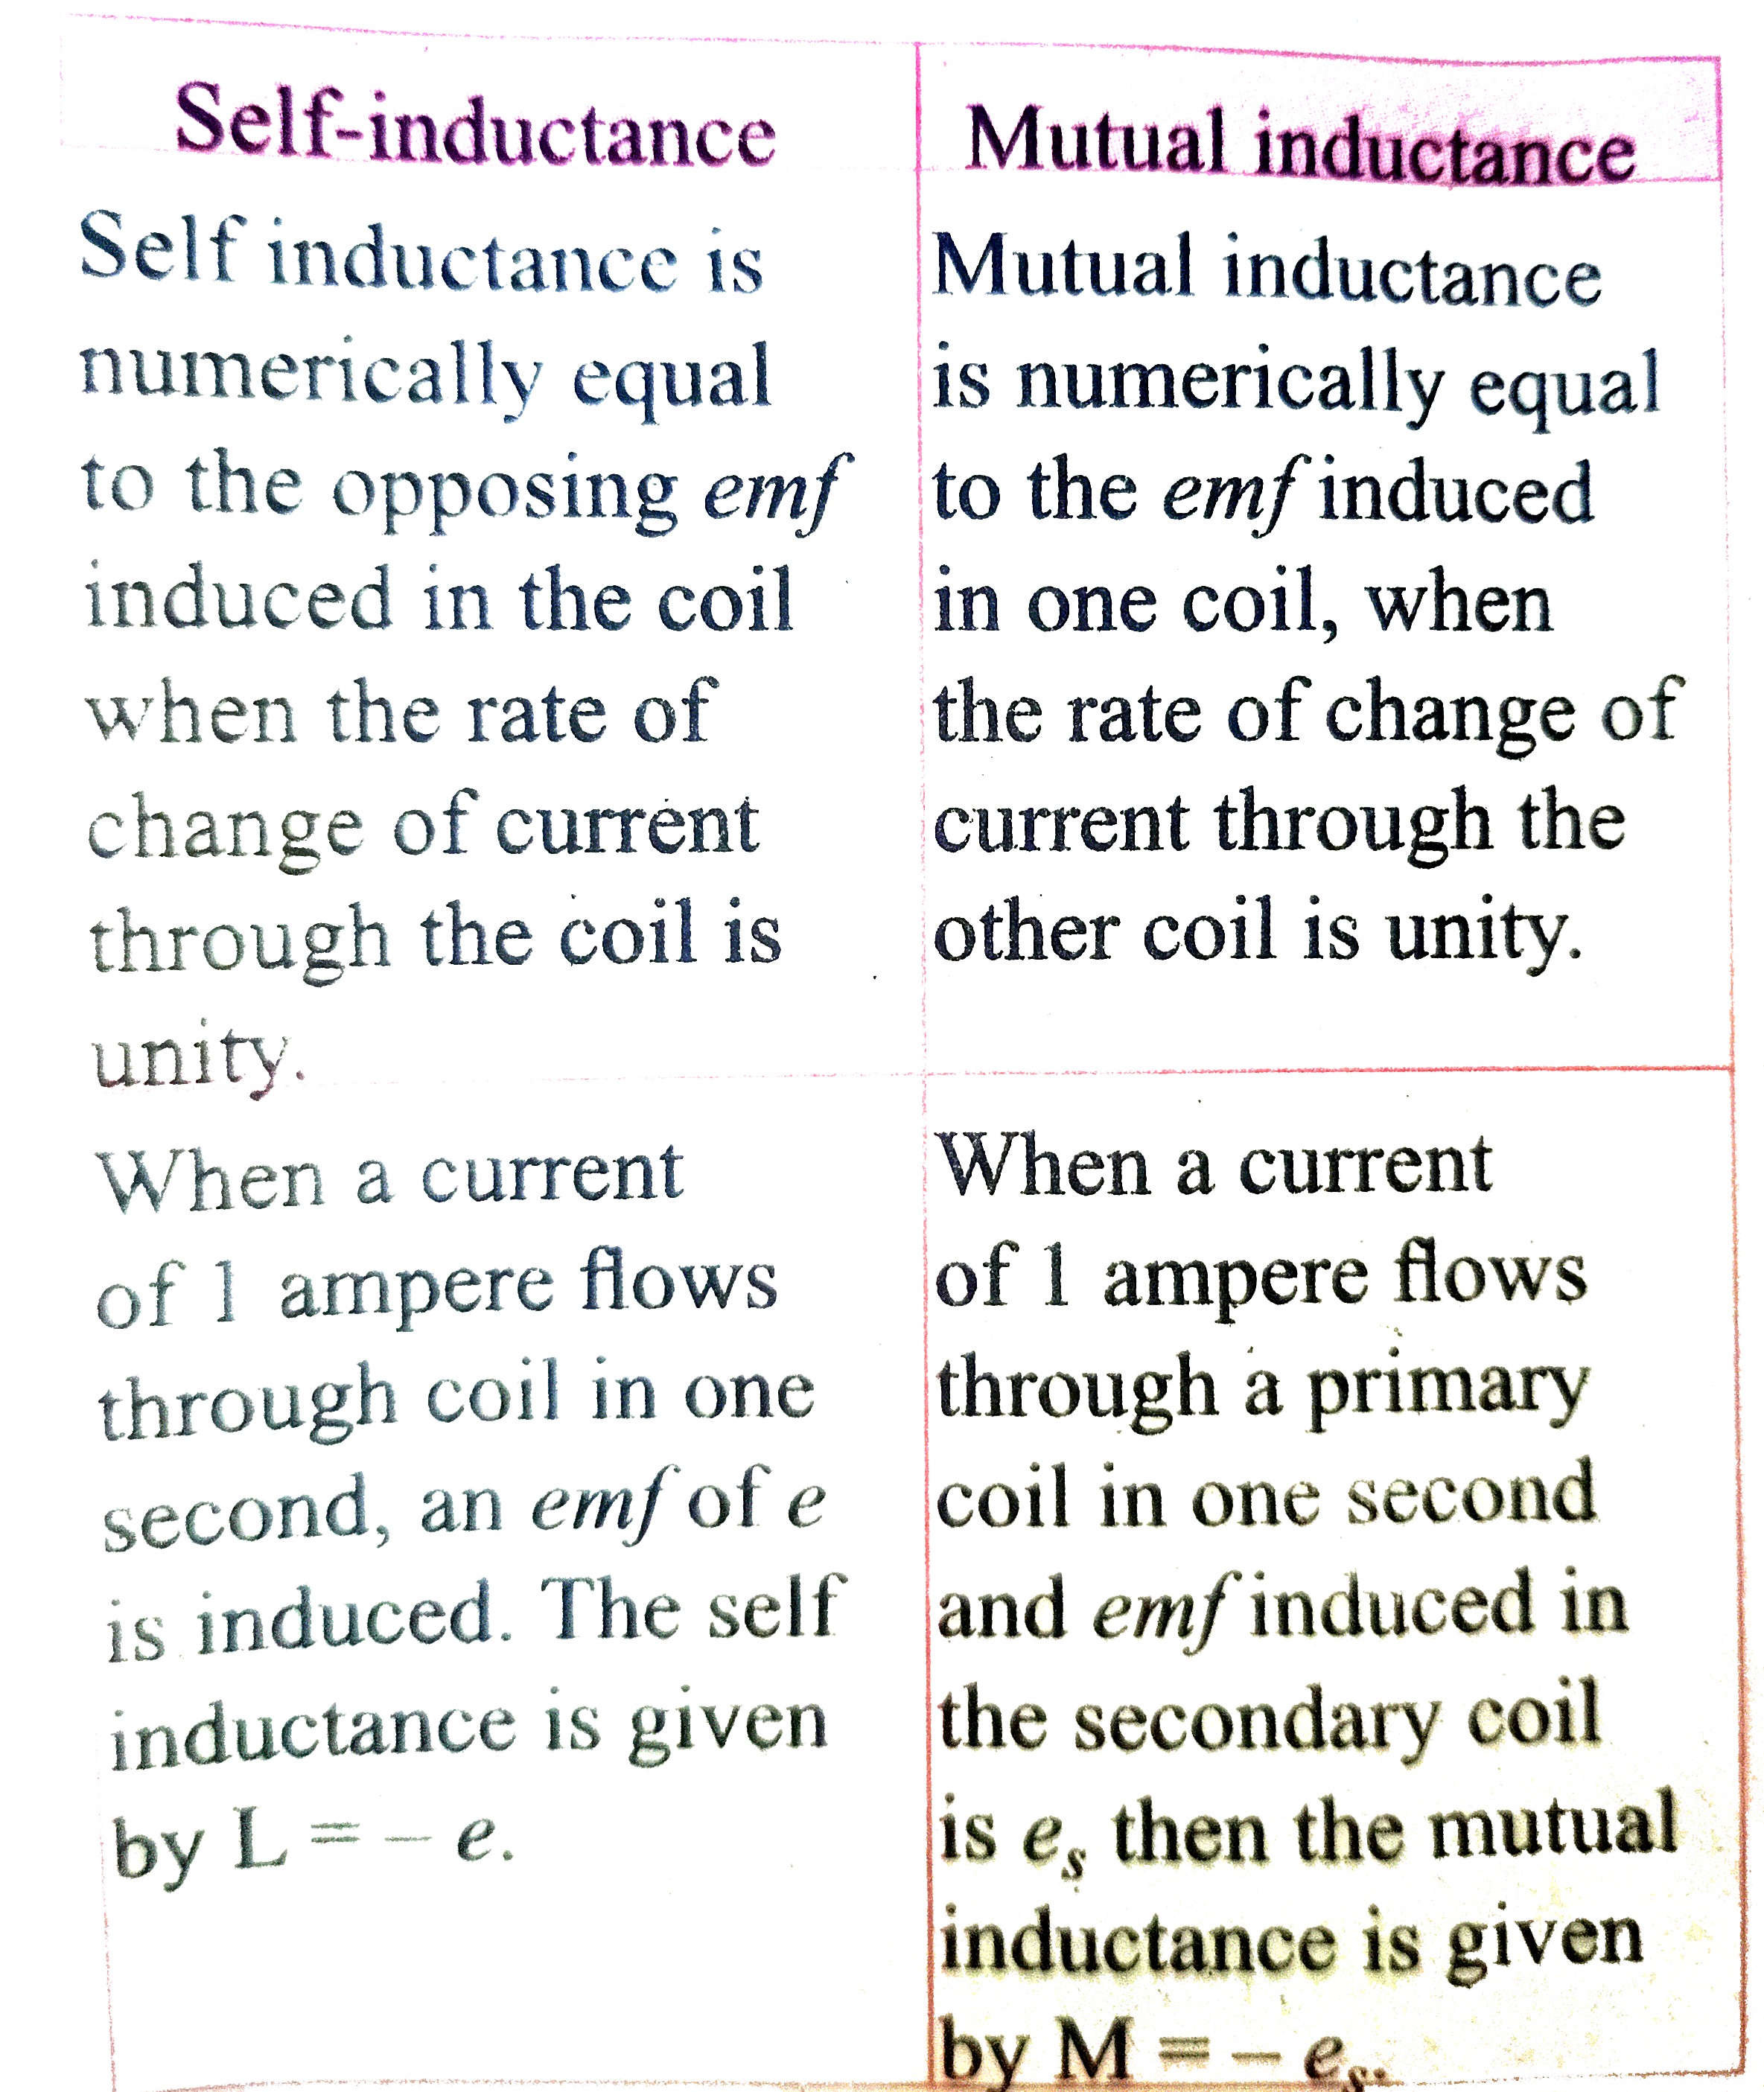 Self-inductance
Self inductance is
numerically equal
to the opposing emf
induced in the coil
when the rate of
change of current
through the coil is
unity.
When a current
of 1 ampere flows
through coil in one
second, an emf of e
is induced. The self
inductance is given
by L = – e.
Mutual inductance
Mutual inductance
is numerically equal
to the emf induced
in one coil, when
the rate of change of
current through the
other coil is unity.
When a current
of 1 ampere flows
through a primary
coil in one second
and emf induced in
the secondary coil
is eₛ then the mutual
inductance is given
by M = – eₛ.